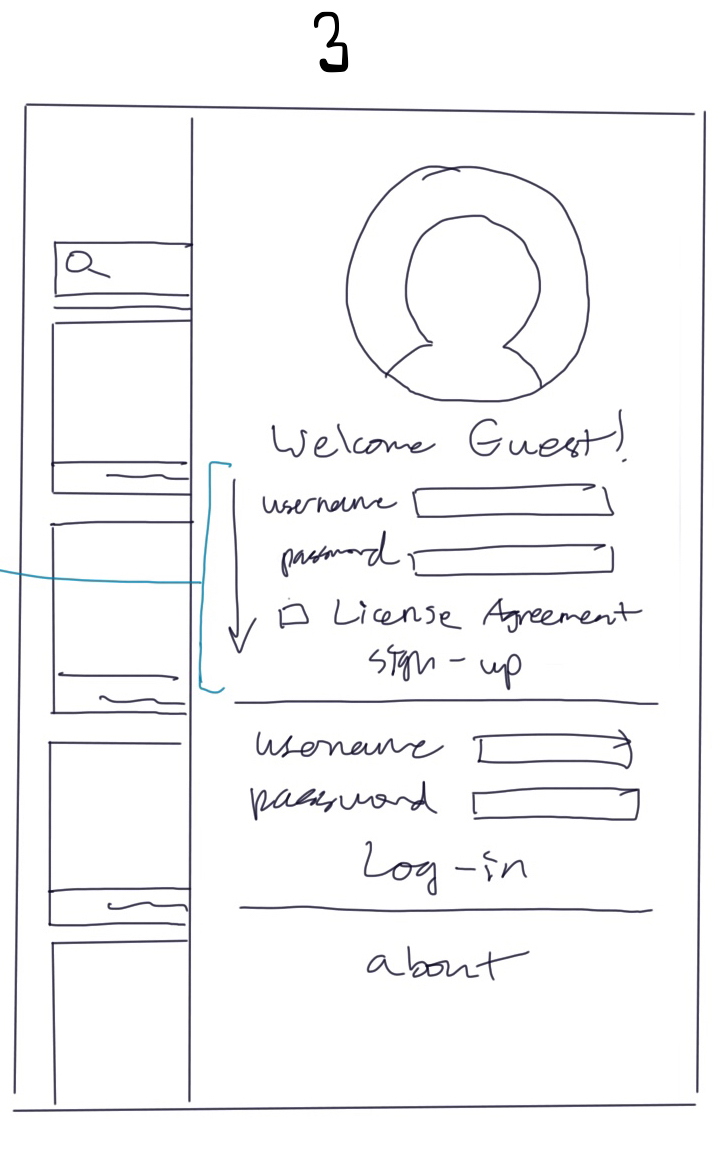 3
Welcome Guest!
username
password
License Agreement
sign-up
username
password
Log-in
about